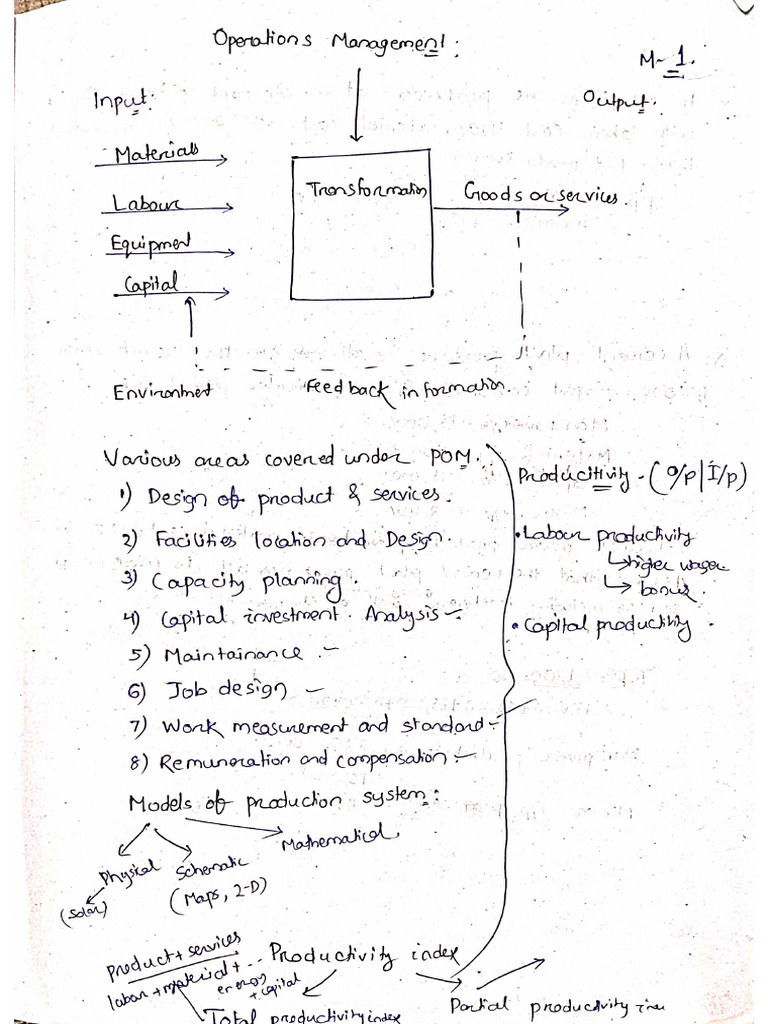 Operations Management:
M-1.
Input:
Output:
Materials
Labour
Equipment
Capital
Transformation
Goods or services.
Environmet
Feedback information
Various areas covered under POM.
1) Design of product & services.
2) Facilities location and Design.
3) Capacity planning.
4) Capital investment Analysis
5) Maintainance.
6) Job design
7) Work measurement and standard
8) Remuneration and compensation
Productivity - (O/p | I/p)
• Labour productivity
higher wages
bonus.
• Capital productivity.
Models of production system:
Physical
Schematic
Mathematical
(Maps, 2-D)
Productivity index
product + services
labour + material + ...
energy
+ capital
Total productivity index
Partial productivity